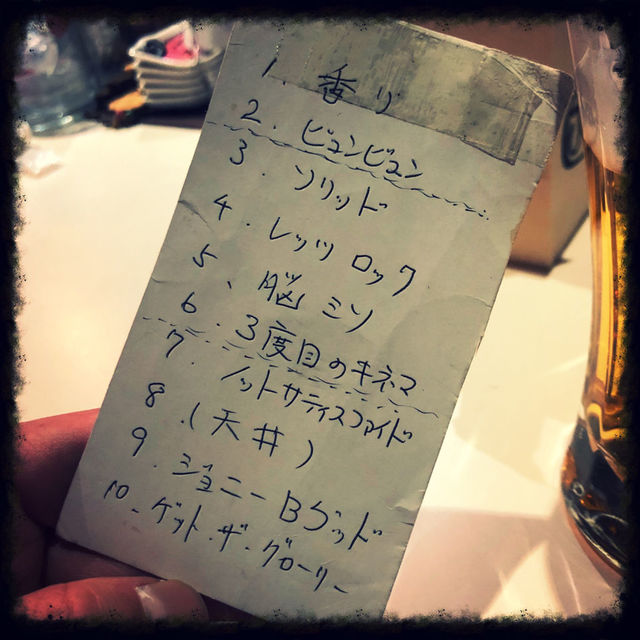 1. 香り
2. ビュンビュン
3. ソリッド
4. レッツ ロック
5. 脳ミソ
6. 3度目のキネマ
7. ノットサティスファイド
8. (天井)
9. ジョニーBグッド
10. ゲット・ザ・グローリー